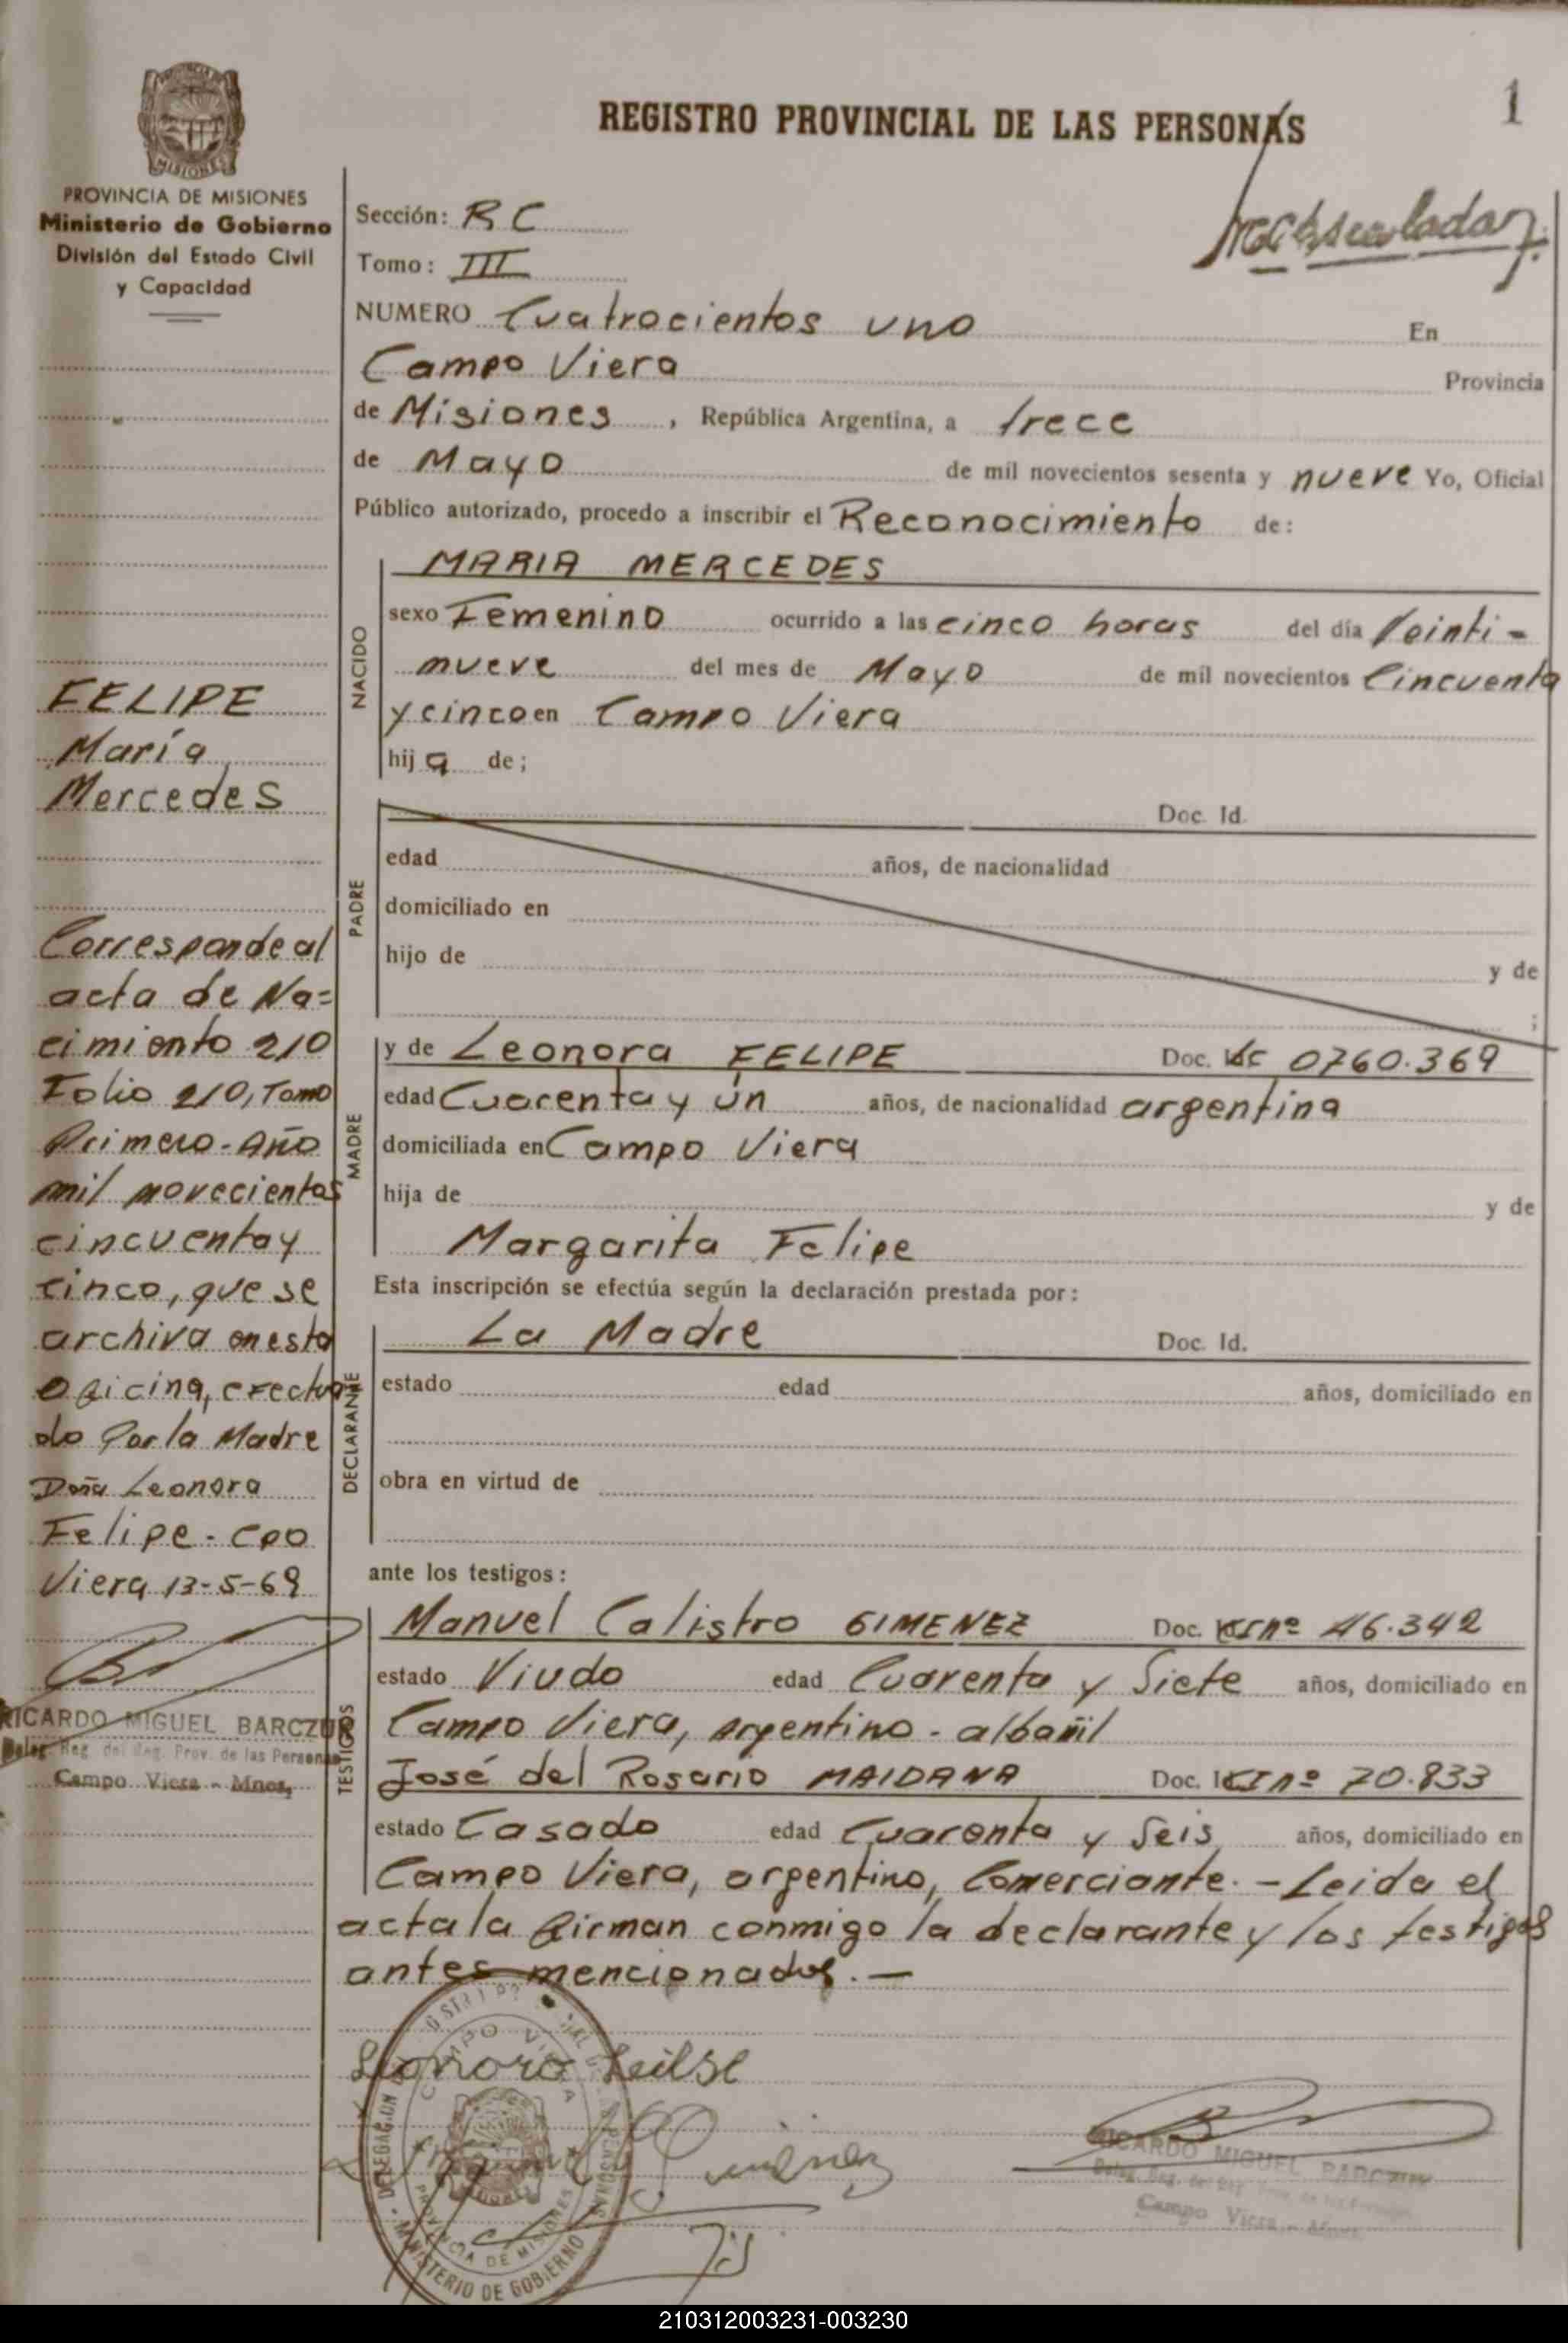 REGISTRO PROVINCIAL DE LAS PERSONAS
1
MISIONES
PROVINCIA DE MISIONES
Ministerio de Gobierno
División del Estado Civil
y Capacidad
FELIPE
María
Mercedes
Corresponde al
acta de Na=
cimiento 210
Folio 210, Tomo
Primero - Año
mil novecientos
cincuenta y
cinco, que se
archiva en esta
oficina, efectua
do Por la Madre
Doña Leonora
Felipe - Cpo
Viera 13-5-69
RICARDO MIGUEL BARCZUK
Deleg. Reg. del Reg. Prov. de las Personas
Campo Viera - Mnes,
Sección: RC
Tomo: III
NUMERO Cuatrocientos uno En
Campo Viera Provincia
de Misiones, República Argentina, a trece
de Mayo de mil novecientos sesenta y nueve Yo, Oficial
Público autorizado, procedo a inscribir el Reconocimiento de:
NACIDO
MARIA MERCEDES
sexo Femenino ocurrido a las cinco horas del día Veinti-
nueve del mes de Mayo de mil novecientos Cincuenta
y cinco en Campo Viera
hija de;
PADRE
Doc. Id.
edad años, de nacionalidad
domiciliado en
hijo de y de
;
MADRE
y de Leonora FELIPE Doc. LC 0760.369
edad Cuarenta y ún años, de nacionalidad argentina
domiciliada en Campo Viera
hija de y de
Margarita Felipe
Esta inscripción se efectúa según la declaración prestada por:
DECLARANTE
La Madre Doc. Id.
estado edad años, domiciliado en
obra en virtud de
ante los testigos:
TESTIGOS
Manuel Calistro GIMENEZ Doc. CI nº 46.342
estado Viudo edad Cuarenta y Siete años, domiciliado en
Campo Viera, argentino - albañil
José del Rosario MAIDANA Doc. CI nº 70.833
estado Casado edad Cuarenta y Seis años, domiciliado en
Campo Viera, argentino, Comerciante. - Leida el
acta la firman conmigo la declarante y los testigos
antes mencionados. —
Leonora
CAMPO VIERA
PROVINCIA DE MISIONES
MINISTERIO DE GOBIERNO
RICARDO MIGUEL BARCZUK
Campo Viera - Mnes.
210312003231-003230